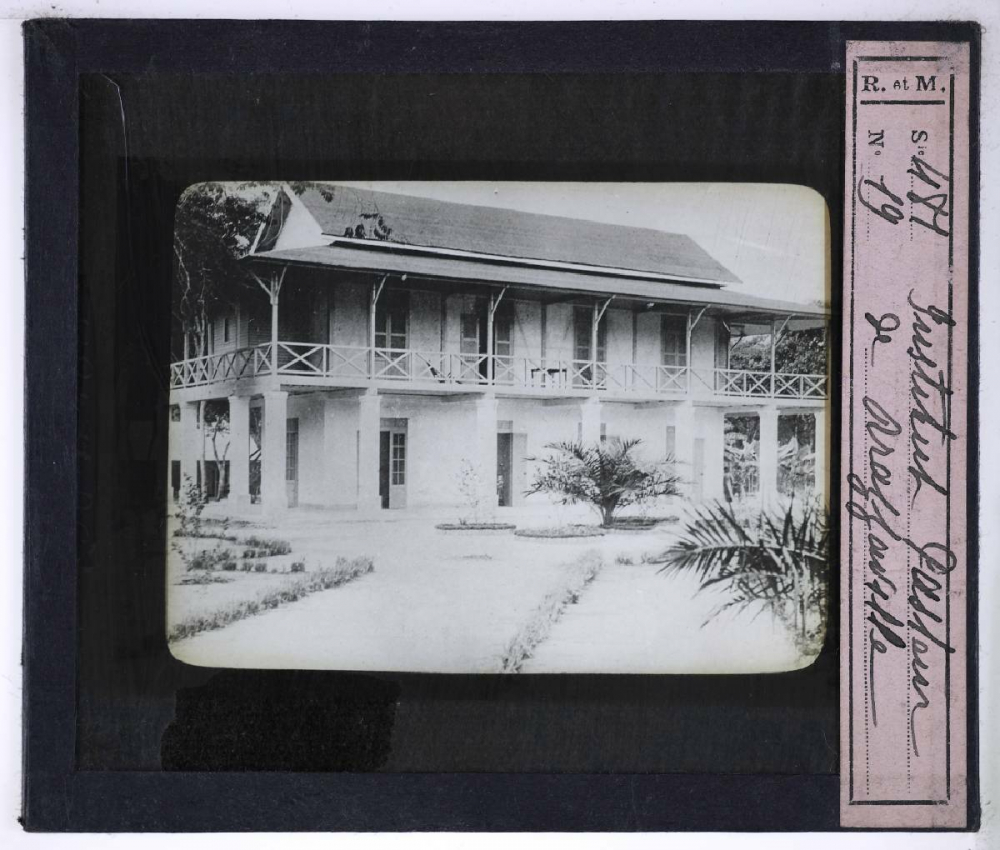 R. et M.
Sie 484
No 19
Institut Pasteur
de Brazzaville